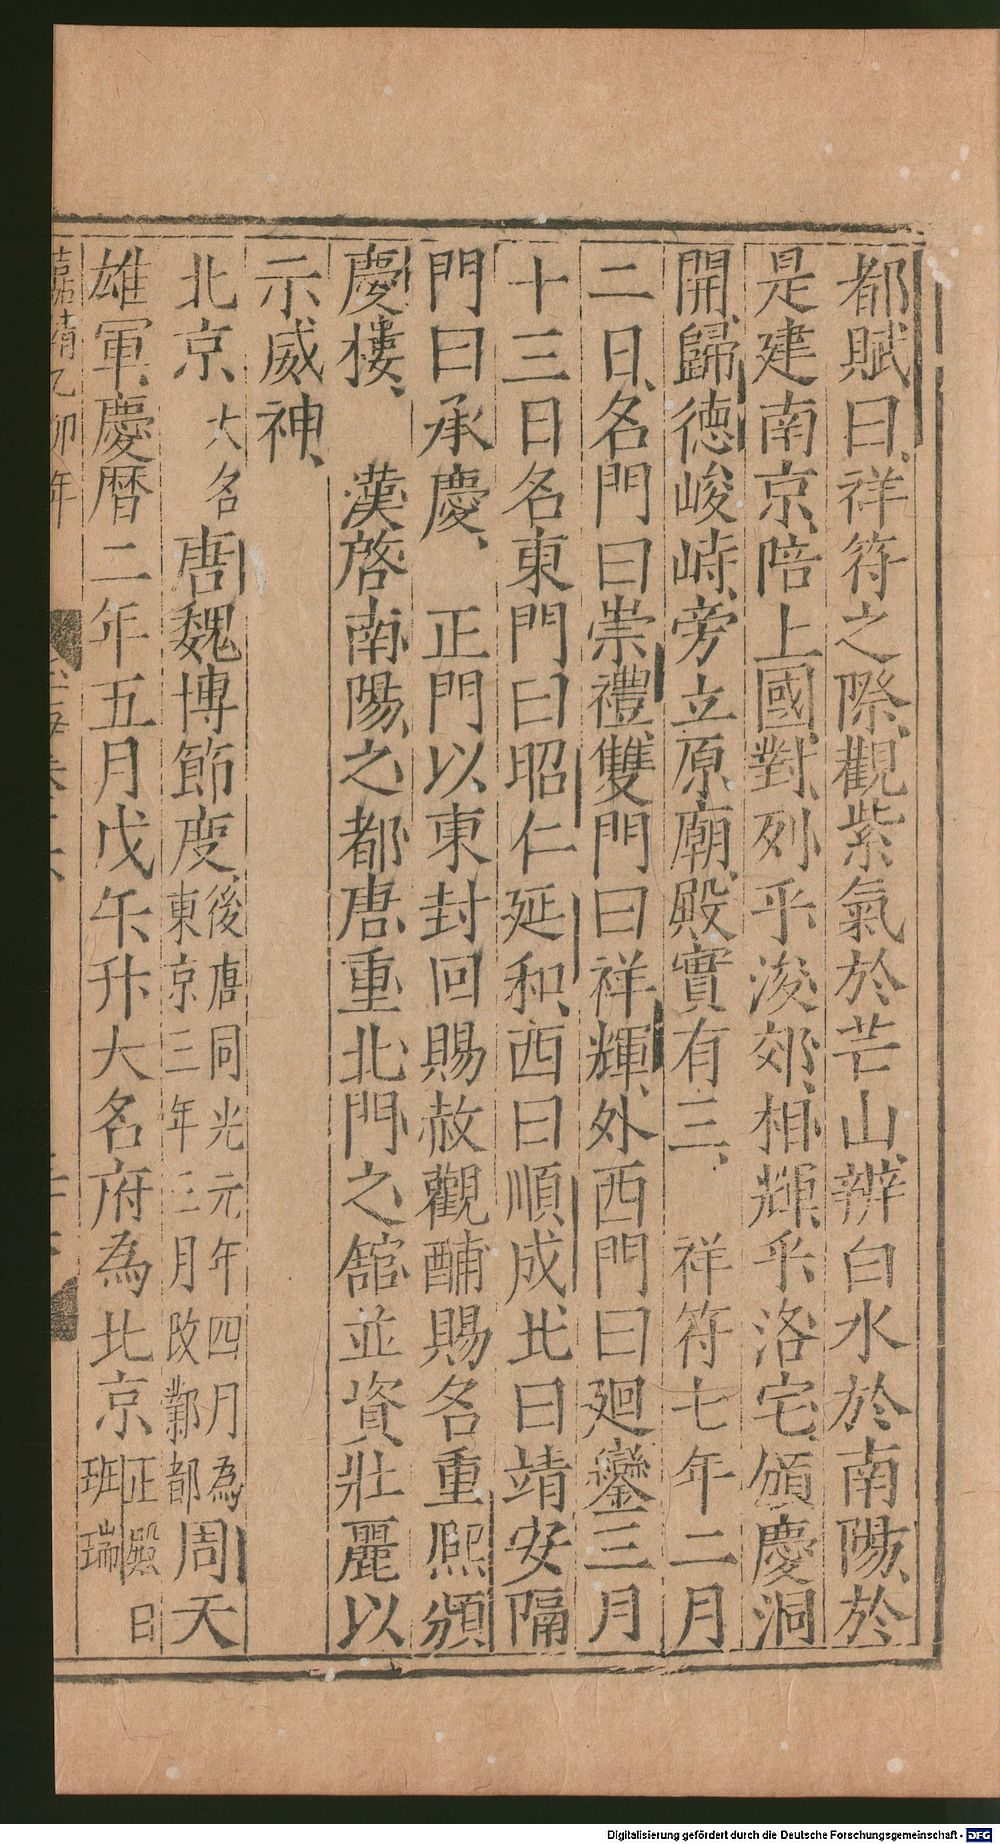 都賦曰祥符之際觀紫氣於芒山辨白水於南陽於
是建南京陪上國對列乎浚郊相輝乎洛宅頒慶洞
開歸德峻峙旁立原廟殿實有三　祥符七年二月
二日名門曰崇禮雙門曰祥輝外西門曰廻鑾三月
十三日名東門曰昭仁延和西曰順成北曰靖安隔
門曰承慶　正門以東封回賜赦觀酺賜名重熈頒
慶樓　漢啓南陽之都唐重北門之舘並資壯麗以
示威神
北京大名唐魏博節度後唐同光元年四月為東京三年三月改鄴都周天
雄軍慶曆二年五月戊午升大名府為北京正殿曰班瑞
嘉靖乙卯年
Digitalisierung gefördert durch die Deutsche Forschungsgemeinschaft - DFG